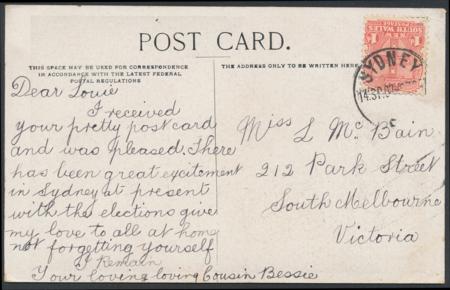 POST CARD.
THIS SPACE MAY BE USED FOR CORRESPONDENCE
IN ACCORDANCE WITH THE LATEST FEDERAL
POSTAL REGULATIONS
Dear Louie
I received
your pretty postcard
and was pleased. There
has been great excitement
in Sydney at present
with the elections give
my love to all at home
not forgetting yourself
I remain
Your loving loving Cousin Bessie
THE ADDRESS ONLY TO BE WRITTEN HERE
Miss L McBain
212 Park Street
South Melbourne
Victoria
NEW
SOUTH WALES
POSTAGE
SYDNEY